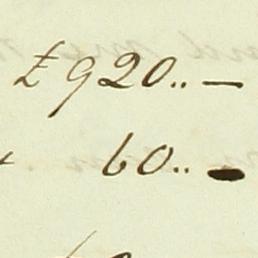 £920..—
60..—